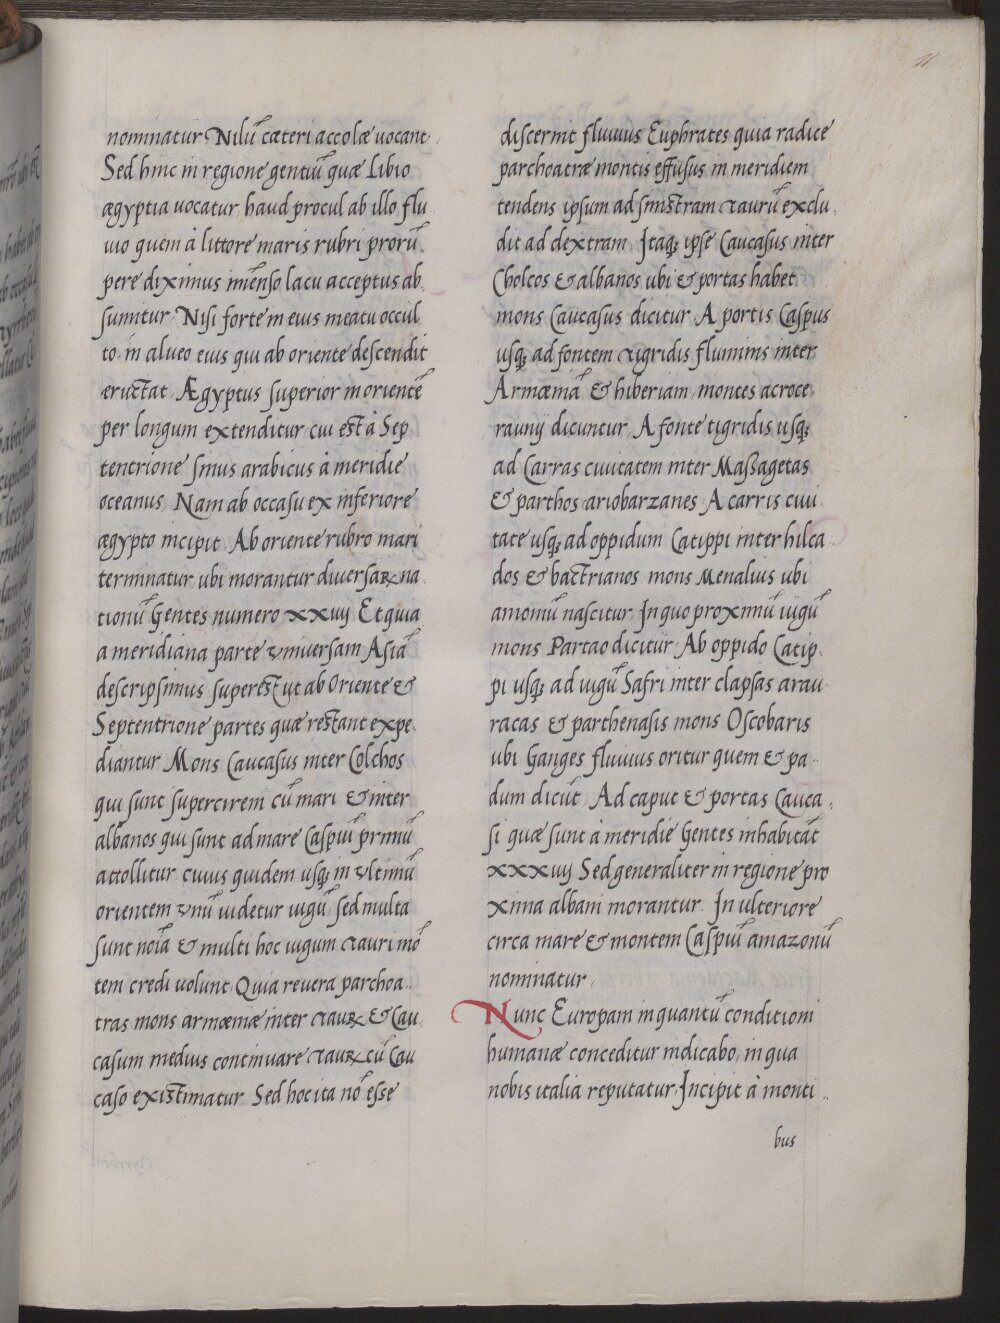 11
nominatur Nilū cæteri accolæ uocant
Sed hinc in regione gentiū quæ Libio
ægyptia uocatur haud procul ab illo flu
uio quem à littore maris rubri prorū
pere diximus imēnso lacu acceptus ab
sumitur Nisi forte in eius meatu occul
to in alueo eius qui ab oriente descendit
eructat Ægyptus superior in orientē
per longum extenditur cui est à Sep
tentrione sinus arabicus à meridie
oceanus Nam ab occasu ex inferiore
ægypto incipit Ab oriente rubro mari
terminatur ubi morantur diuersaꝝ na
tionū Gentes numero xxiiij Et quia
a meridiana parte vniuersam Asiā
descripsimus superest ut ab Oriente &
Septentrione partes quæ restant expe
diantur Mons Caucasus inter Colchos
qui sunt super cireni cū mari & inter
albanos qui sunt ad mare Caspiū primū
attollitur cuius quidem usqꝫ in vltimū
orientem vnū uidetur iugū sed multa
sunt noīa & multi hoc iugum Tauri mō
tem credi uolunt Quia reuera parchoa
tras mons armœniæ inter Tauꝝ & Cau
casum medius continuare Tauꝝ cū Cau
caso existimatur Sed hoc ita nō esse
discernit fluuius Euphrates quia radice
parchoatræ montis effusus in meridiem
tendens ipsum ad sinistram Taurū exclu
dit ad dextram Itaqꝫ ipse Caucasus inter
Cholcos & albanos ubi & portas habet
mons Caucasus dicitur A portis Caspus
usqꝫ ad fontem Tigridis fluminis inter
Armœniā & hiberiam montes acroce
raunij dicuntur A fonte tigridis usqꝫ
ad Carras ciuitatem inter Massagetas
& parthos ariobarzanes A carris ciui
tate usqꝫ ad oppidum Catippi inter hilca
dos & bactrianos mons Menalius ubi
amomū nascitur In quo proximū iugū
mons Partao dicitur Ab oppido Catip
pi usqꝫ ad iugū Safri inter clapsas arau
racas & parthenasis mons Oscobaris
ubi Ganges fluuius oritur quem & pa
dum dicūt Ad caput & portas Cauca
si quæ sunt à meridie Gentes inhabitāt
xxxiiij Sed generaliter in regione pro
xima albani morantur In ulteriore
circa mare & montem Caspiū amazonū
nominatur
Nunc Europam in quantū conditioni
humanæ conceditur indicabo in qua
nobis italia reputatur Incipit à monti
bus